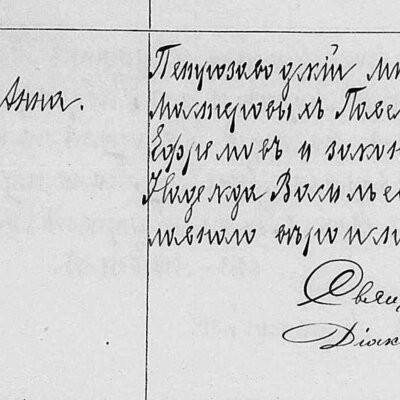 Анна.
Петрозаводскій мі
мастеровыхъ Паве
Ефремовъ и закон
Надежда Василье
лавнаго вѣроис
Свящ
Діак